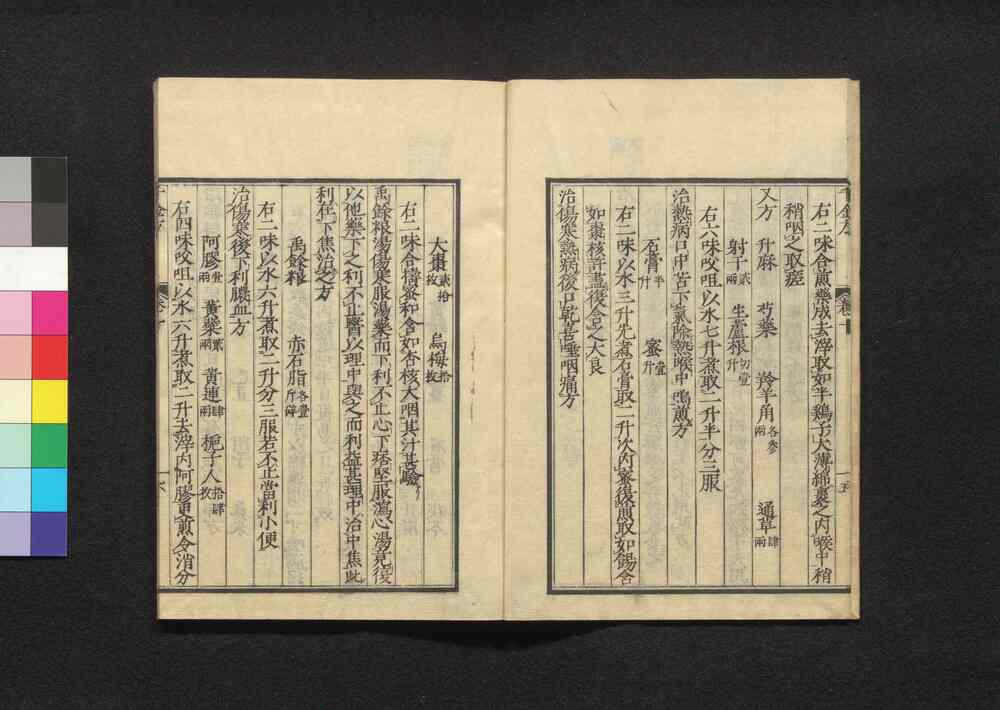 右二味合煎藥成去滓取如半鷄子大薄綿裹之内喉中稍
稍咽之取瘥
又方　升麻　芍藥　羚羊角各參兩　通草肆兩
射干貳兩　生蘆根切壹升
右六味㕮咀以水七升煮取二升半分三服
治熱病口中苦下氣除熱喉中鳴煎方
石膏半斤　蜜壹升
右二味以水三升先煮石膏取二升次内蜜復煎取如餳含
如棗核許盡復含之大良
治傷寒熱病後口乾喜唾咽痛方
大棗貳拾枚　烏梅拾枚
右二味合擣蜜和含如杏核大咽其汁甚驗
禹餘粮湯傷寒服湯藥而下利不止心下痞堅服瀉心湯竟復
以他藥下之利不止醫以理中與之而利益甚理中治中焦此
利在下焦治之方
禹餘粮　赤石脂各壹斤碎
右二味以水六升煮取二升分三服若不止當利小便
治傷寒後下利膿血方
阿膠壹兩　黃蘗貳兩　黃連肆兩　梔子人拾肆枚
右四味㕮咀以水六升煮取二升去滓内阿膠更煎令消分